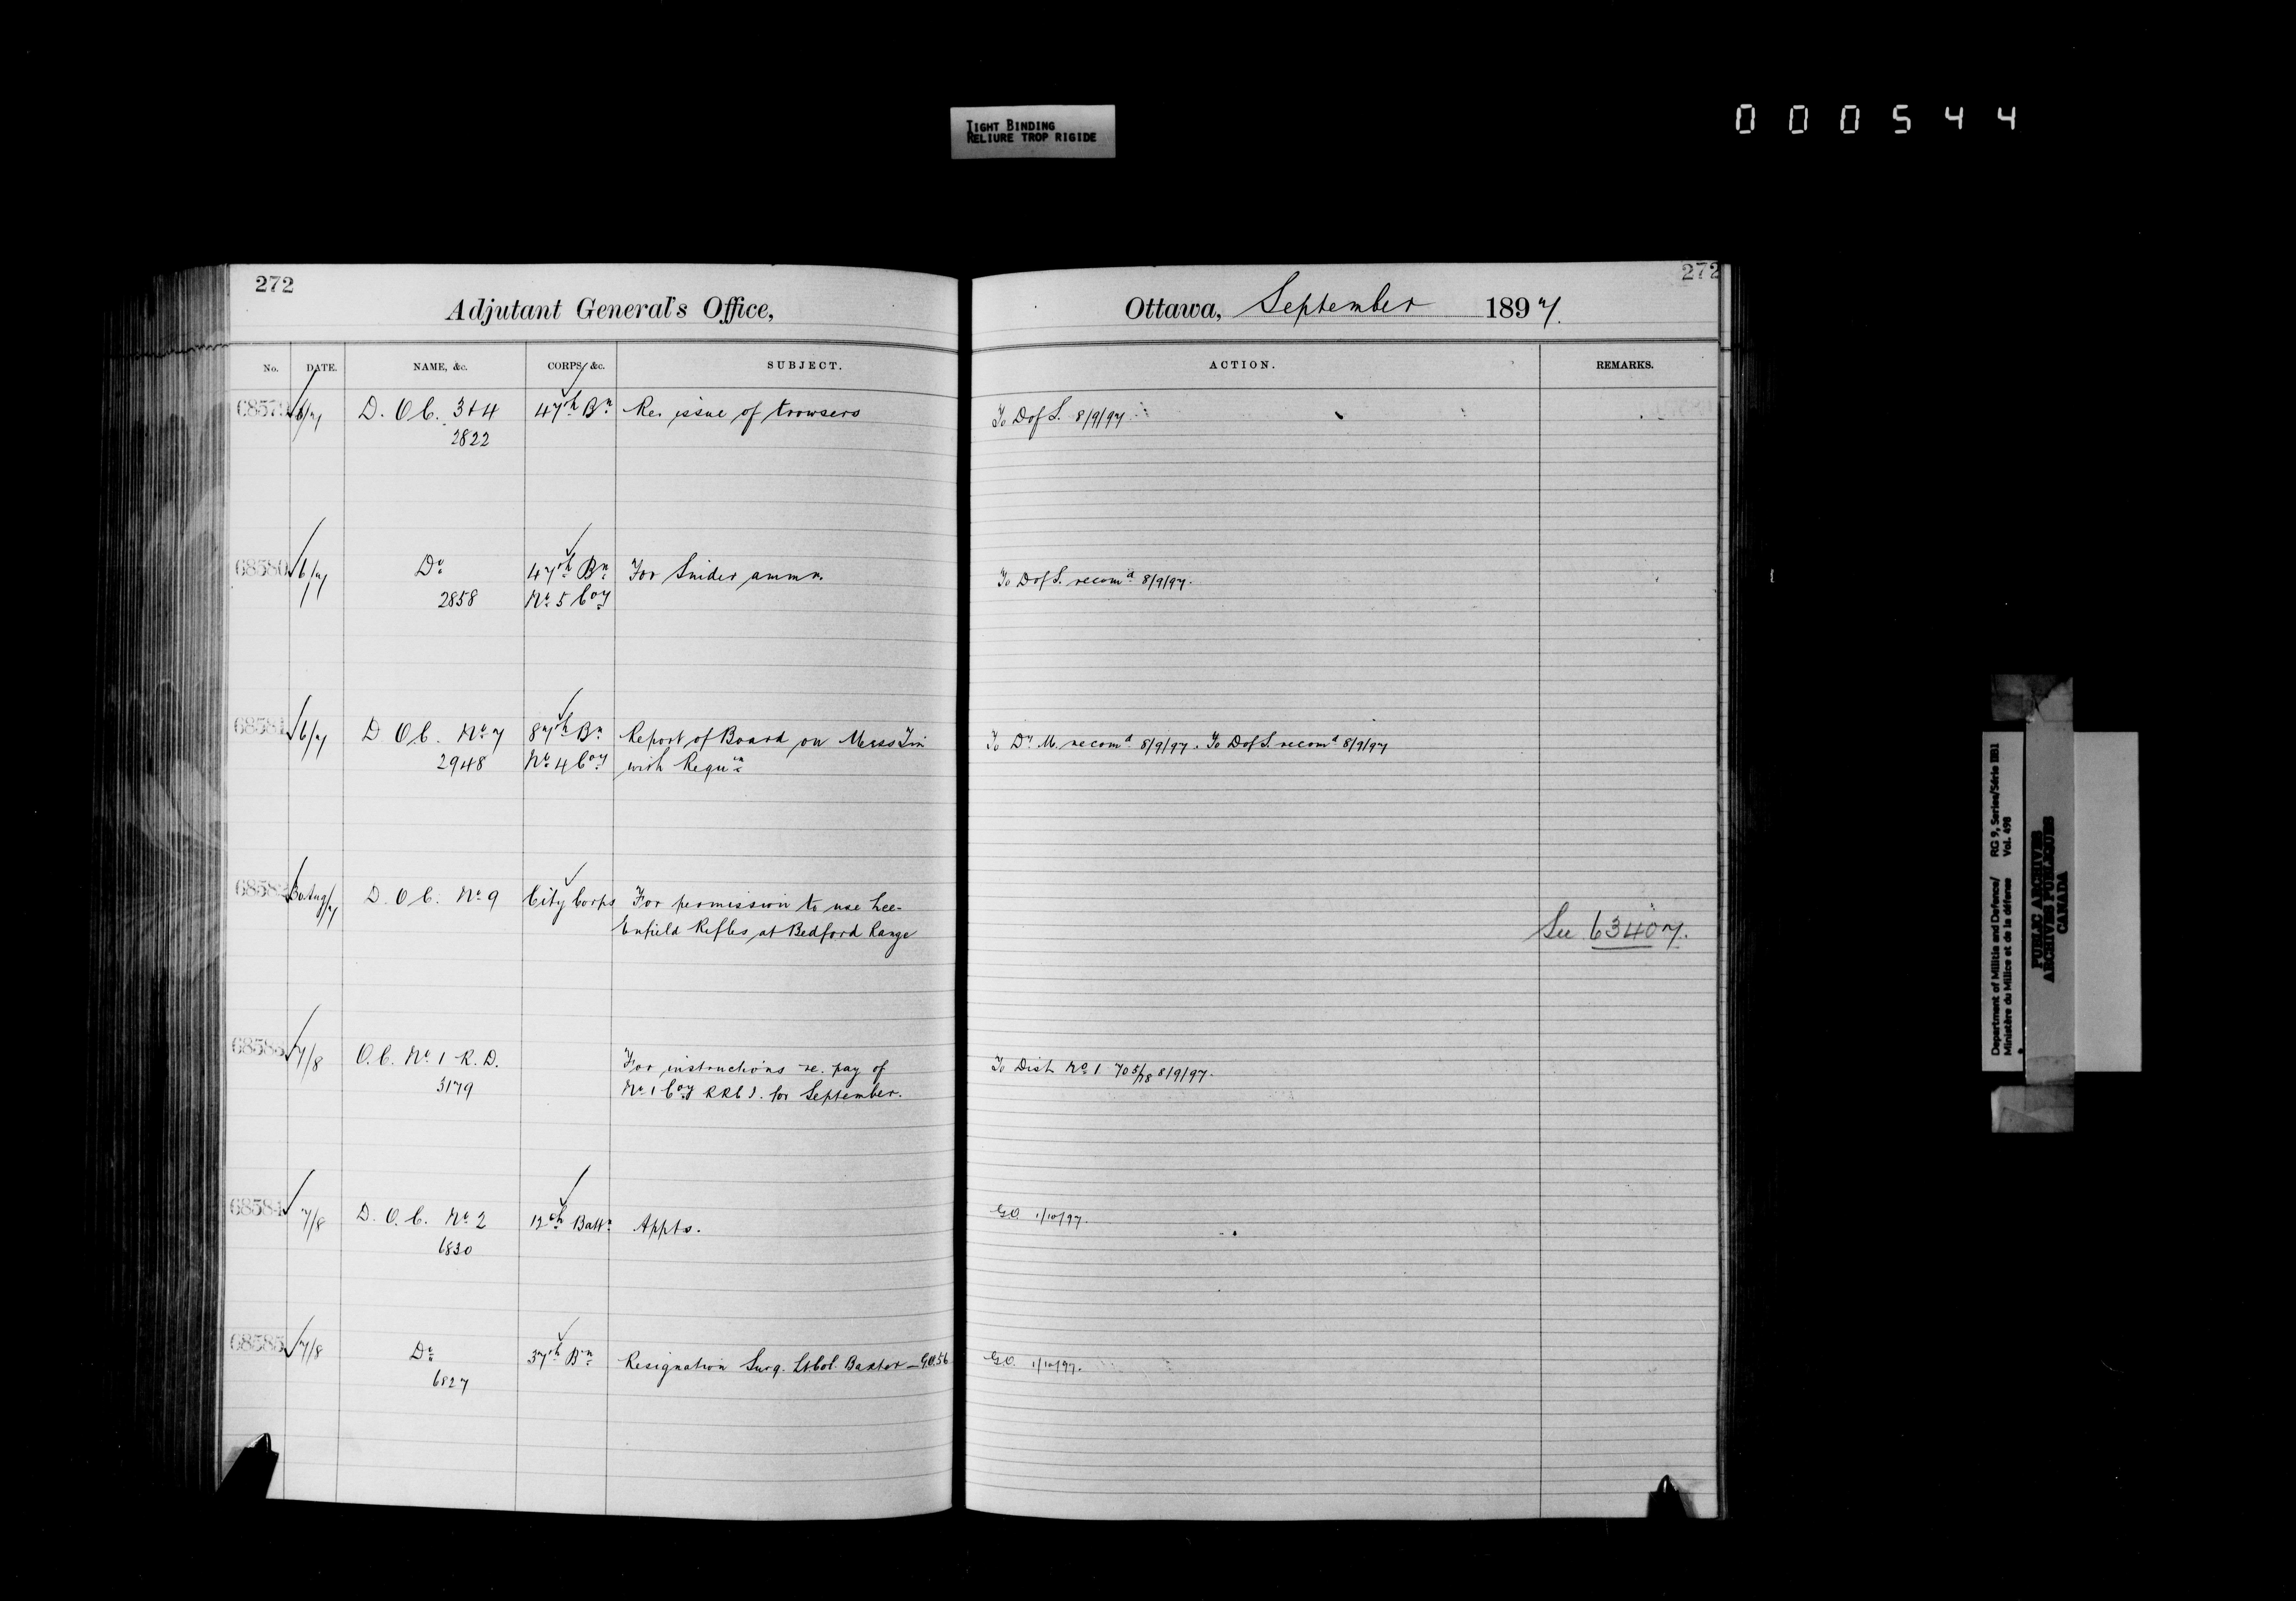 TIGHT BINDING
RELIURE TROP RIGIDE
000544
272
Adjutant General's Office,
No. DATE. NAME, &c. CORPS, &c. SUBJECT.
68579 6/7 D. O C. 3+4 47th Bn Re. issue of trowsers
2822
68580 6/7 Do 47th Bn For Snider ammn.
2858 No 5 Coy
68581 6/7 D O C. No 7 87th Bn Report of Board on Mess Tin
2948 No 4 Coy with Requn
68582 30 Aug/7 D. O C. No 9 City Corps For permission to use Lee-
Enfield Rifles at Bedford Range
68583 7/8 O. C. No 1 R. D. For instructions re. pay of
3179 No 1 Coy RRCI. for September.
68584 7/8 D. O. C. No 2 12th Battn Appts.
6830
68585 7/8 Do 37th Bn Resignation Surg. Lt Col. Baxter — G.O.56
6827
272
Ottawa, September 1897.
ACTION. REMARKS.
To D of S. 8/9/97
To D of S. recomd 8/9/97.
To Dr M. recomd 8/9/97. To D of S. recomd 8/9/97
See 63407.
To Dist No 1 8/9/97.
G.O. 1/10/97.
G.O. 1/10/97.
Department of Militia and Defence/ RG 9, Series/Série IIB1
Ministère du Milice et de la défense Vol. 498
PUBLIC ARCHIVES
ARCHIVES PUBLIQUES
CANADA